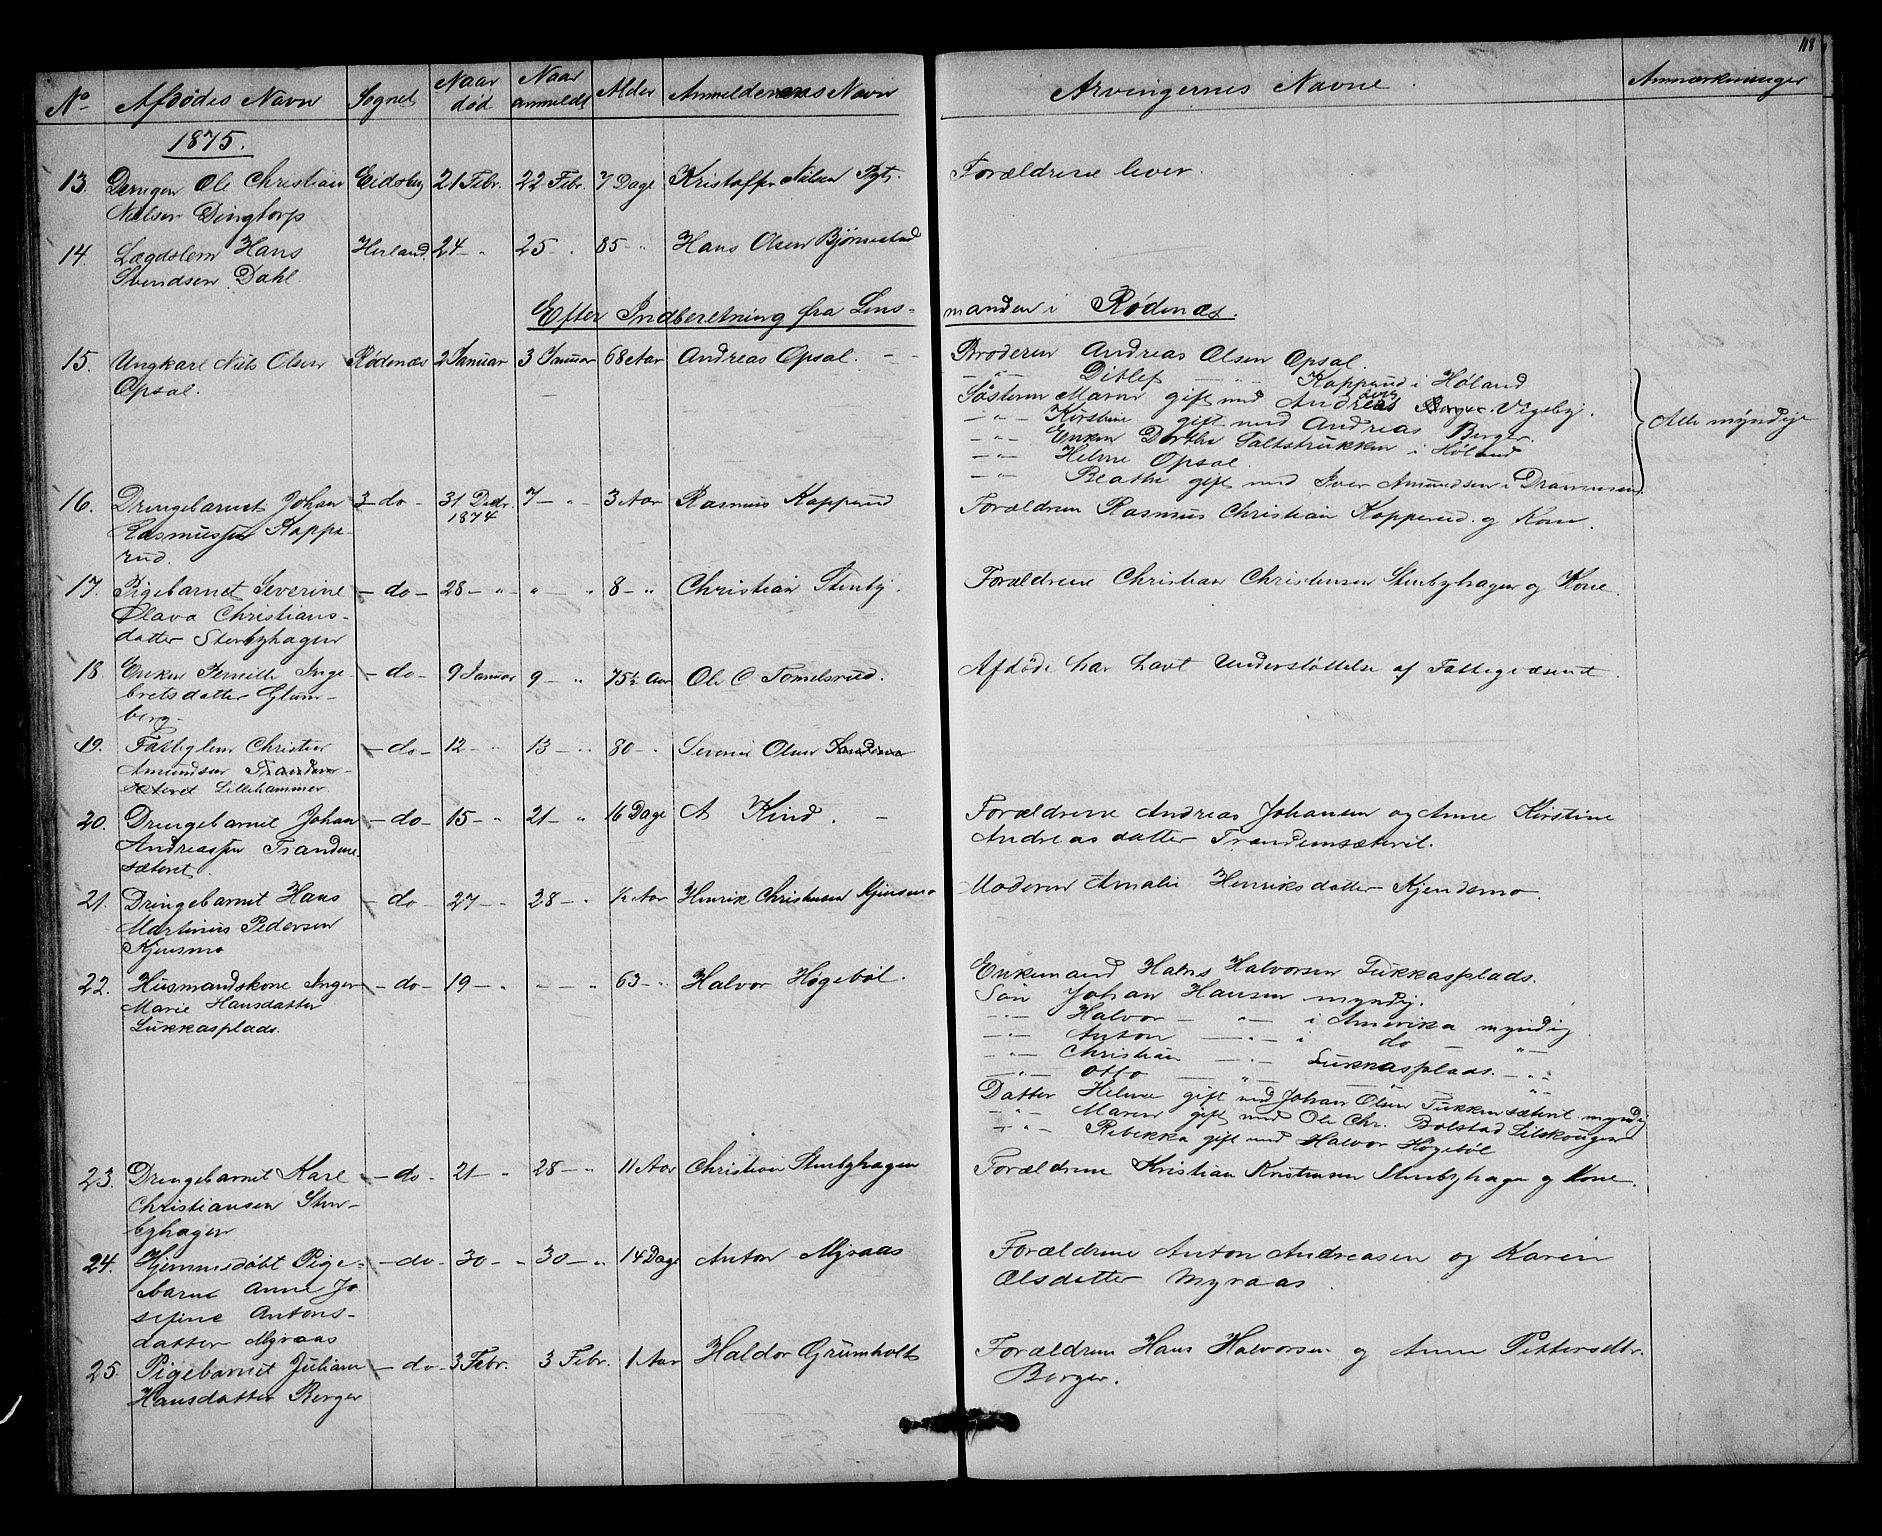 118
No Afdødes Navn Sognet Naar død Naar anmeldt Alder Anmelderens Navn Arvingernes Navne Anmærkninger
1875.
13. Drengen Ole Christian Eidsberg 21 Febr. 22 Febr. 7 Dage Kristoffer Nilsen Forældrene lever.
Nielsen Dingtorp
14. Lægdslem Hans Herland 24 - " 25 - " 85 - " Hans Olsen Bjørnestad
Svendsen Dahl
Efter Indberetning fra Lens-
manden i Rødenæs.
15. Ungkarl Nils Olsen Rødenæs 2 Januar 3 Januar 68 Aar Andreas Opsal. - - Broderen Andreas Olsen Opsal.
Opsal.
- " - Ditlef - " - Kopperud i Høland
Søsteren Maren gift med Andreas Vigeby.
- " - Kirstine gift med Andreas Berger.
- " - Enken Dorthe Saltstrukken i Høland
- " - Helene Opsal.
- " - Beathe gift med Iver Amundsen i Drammen
Alle myndige
16. Drengebarnet Johan - do - 31 Decbr 1874 7 - " 3 Aar Rasmus Kopperud Forældren Rasmus Christian Kopperud og Kone.
Rasmussen Koppe-
rud.
17. Pigebarnet Severine - do - 28 - " - " - " 8 - " Christian Stenby. Forældrene Christian Christensen Stenbyhagen og Kone.
Olava Christians-
datter Stenbyhagen
18. Enken Pernille Inge- - do - 9 Januar 9 - " 75½ Aar Ole C Tomelsrud. Afdøde har havt Understøttelse af Fattigvæsenet
bretsdatter Glam-
berg
19. Fattiglem Christen - do - 12 - " 13 - " 80 - " Severin Olsen
Amundsen
Lillehammer.
20. Drengebarnet Johan - do - 15 - " 21 - " 16 Dage A Kind. - Forældrene Andreas Johansen og Anne Kirstine
Andreassen Trandem- Andreasdatter Trandemsæteret.
sæteret.
21. Drengebarnet Hans - do - 27 - " 28 - " ½ Aar Henrik Christensen Kjensmo Moderen Amalie Henriksdatter Kjendsmo.
Martinius Pedersen
Kjensmo
22. Husmandskone Inger - do - 19 - " - " 63 - " Halvor Høgebøl. Enkemand Hans Halvorsen Lukkasplads.
Marie Hansdatter Søn Johan Hansen myndig.
Lukkasplads.
- " - Halvor - " - i Amerika myndig
- " - Anton - " - i do - " -
- " - Christian - " - Lukkasplads. - " -
- " - Otto - " - " -
Datter Helene gift med Johan Olsen Tukkensæteret myndig
- " - Maren gift med Ole Chr. Bolstad
- " - Rebekka gift med Halvor Høgebøl
23. Drengebarnet Karl - do - 21 - " 28 - " 11 Aar Christian Stenbyhagen Forældrene Kristian Kristensen Stenbyhagen og Kone.
Christiansen Sten-
byhagen
24. Hjemmedøbt Pige- - do - 30 - " 30 - " 14 Dage Anton Myraas Forældrene Anton Andreasen og Karen
barn Anne Jo- Olsdatter Myraas.
sefine Antons-
datter Myraas
25. Pigebarnet Juliane - do - 3 Febr. 3 Febr. 1 Aar Haldor Grumholt Forældren Hans Halvorsen og Anne Pettersdtr.
Hansdatter Berger Berger.